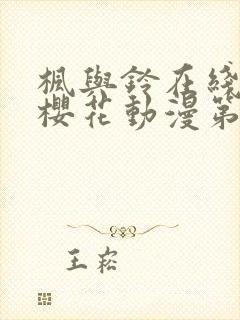 楓與鈴在綫
櫻花動漫第
王崧